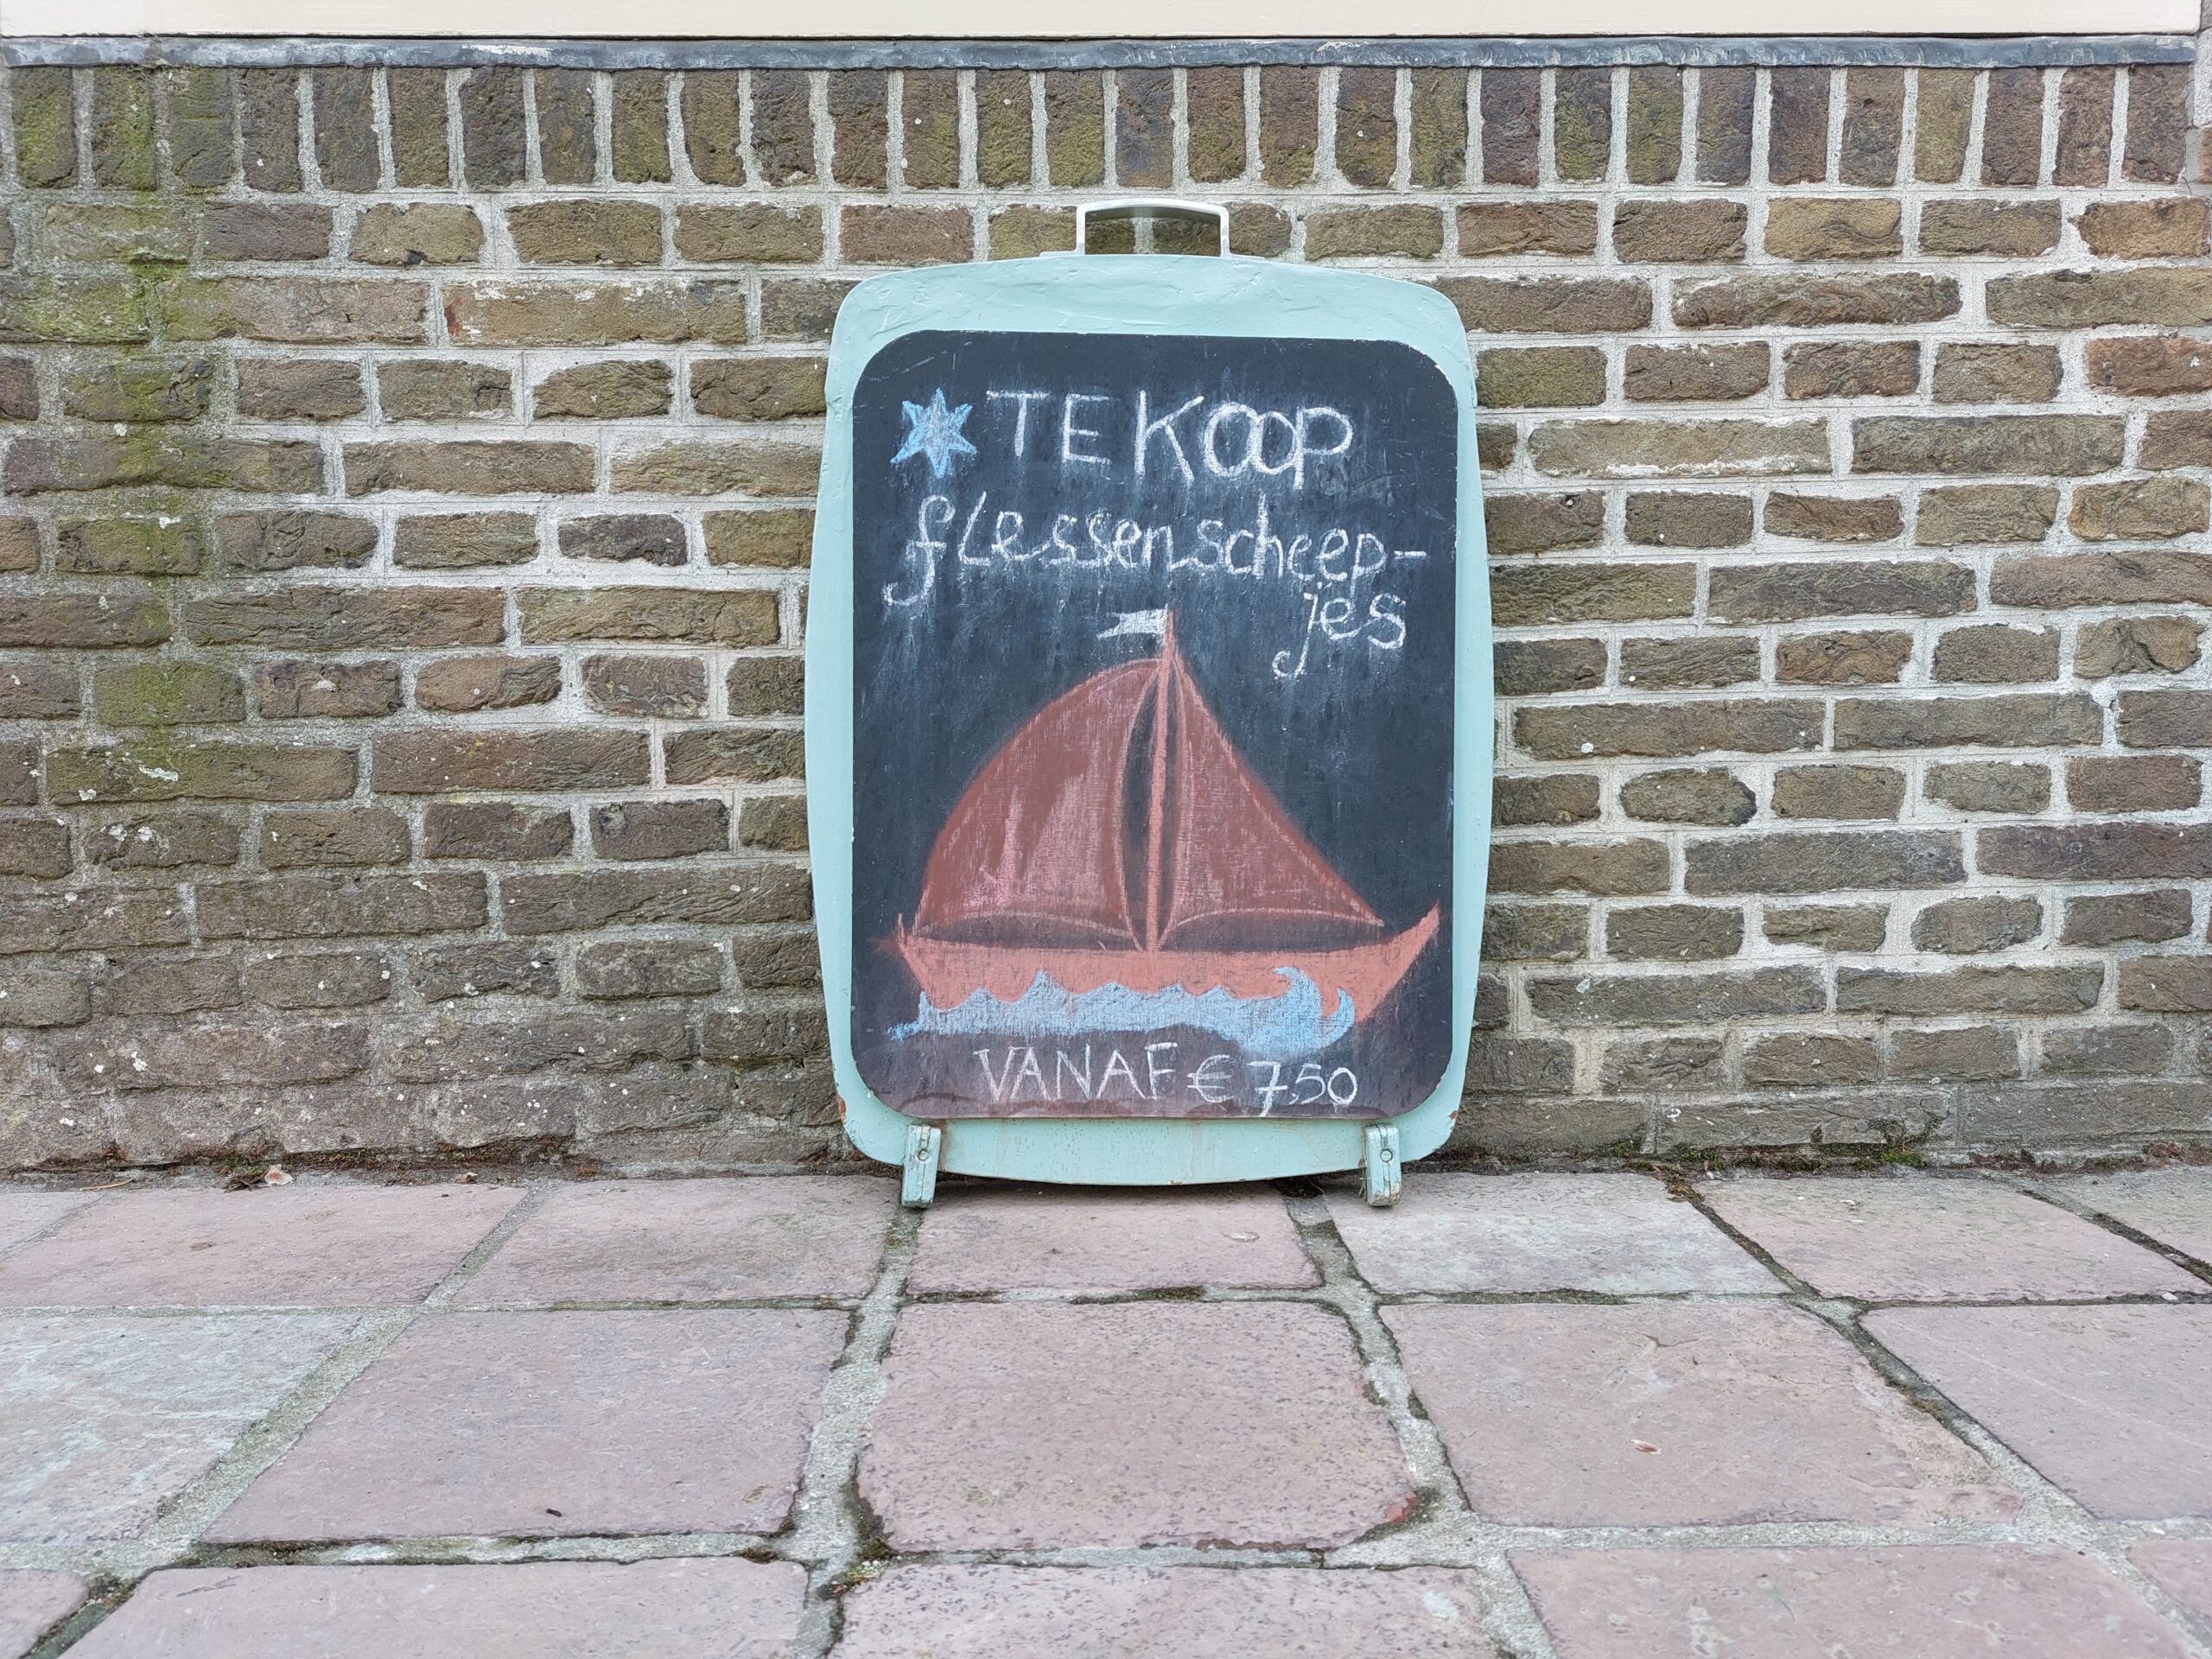 TE KOOP
flessenscheep-
jes
VANAF € 7,50